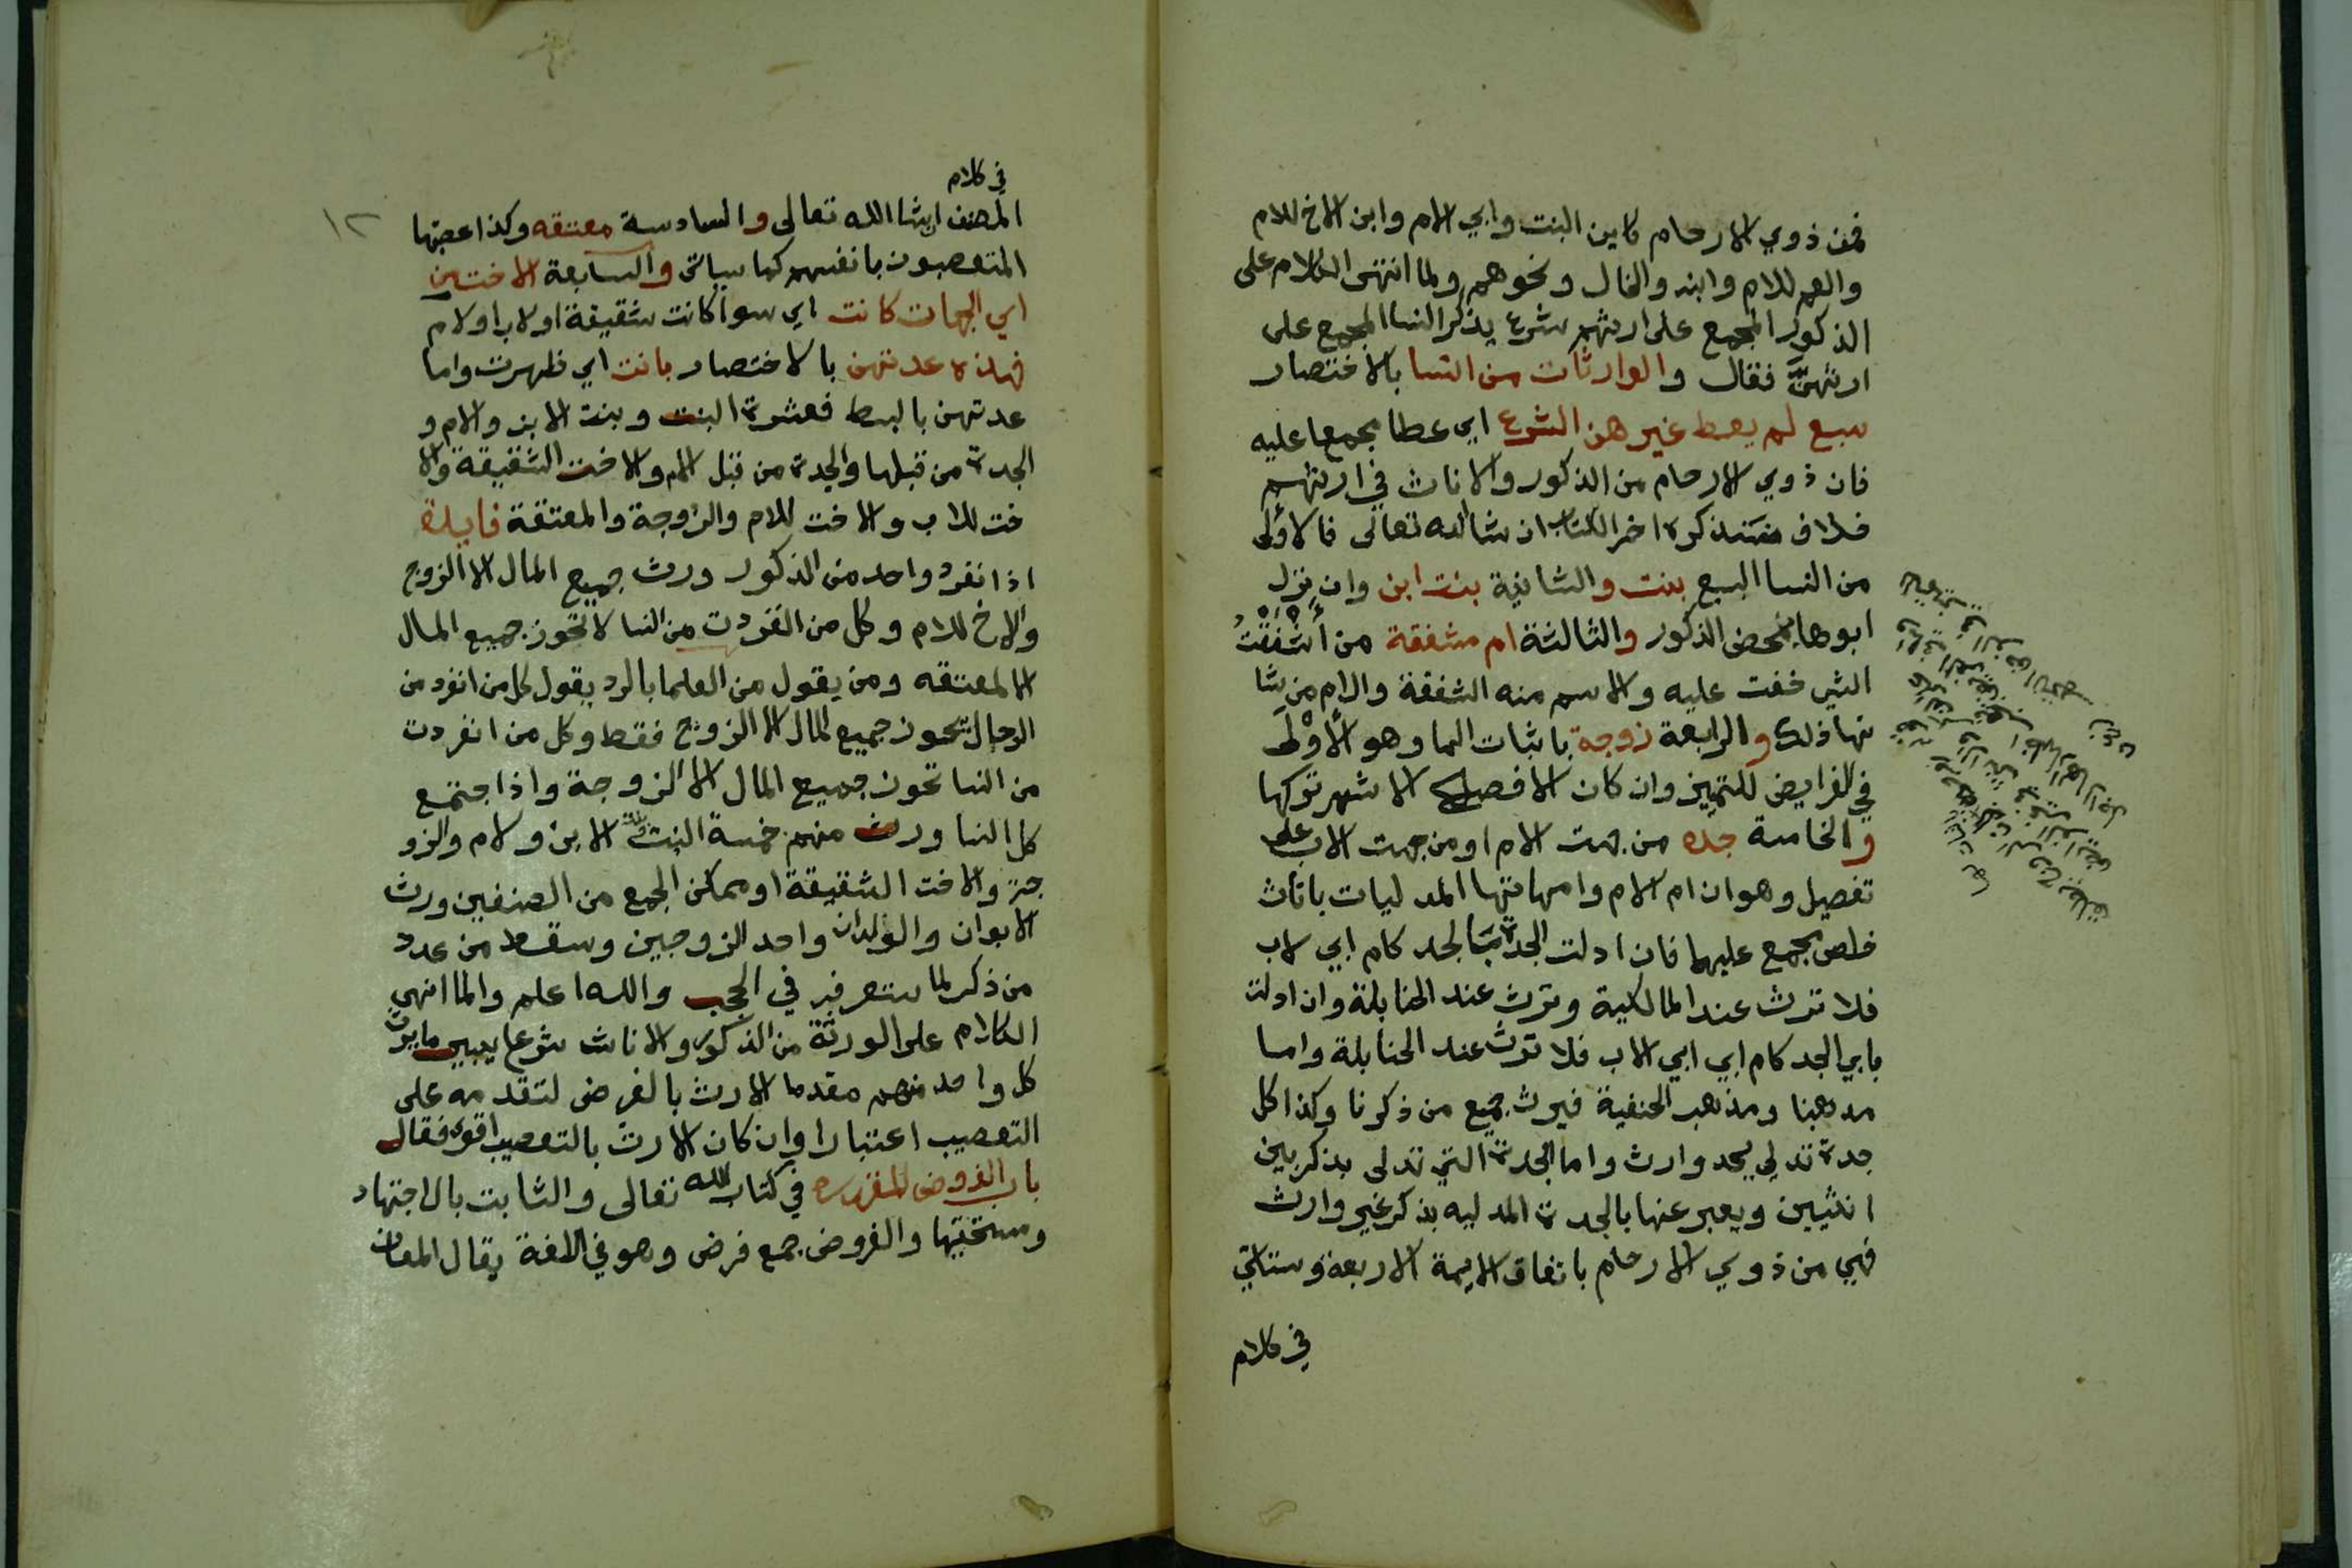 فمن ذوي الارحام كابن البنت وابي الام وابن الاخ للام
والعم للام وابنه والخال ونحوهم ولما انتهى الكلام على
الذكور المجمع على ارثهم شرع يذكر النسا المجمع على
ارثهنَّ فقال والوارثات من النسا بالاختصار
سبع لم يعط غيرهن الشرع اي عطا مجمعا عليه
فان ذوي الارحام من الذكور والاناث في ارثهم
خلاف سنذكره اخر الكتاب ان شا الله تعالى فالاولى
من النسا السبع بنت والثانية بنت ابن وان نزل
ابوها بمحض الذكور والثالثة ام مشفقة من أَشْفَقْتُ
الشي خفت عليه والاسم منه الشفقة والام من شا
نها ذلك والرابعة زوجة باثبات الها وهو الأوْلَى
في الفرايض للتمييز وان كان الافصح الاشهر تركها
والخامسة جده من جهت الام او من جهت الاب على
تفصيل وهو ان ام الام وامهاتها المدليات باناث
خلص مجمع عليها فان ادلت الجدة بالجد كام ابي لاب
فلا ترث عند المالكية وترث عند الحنابلة وان ادلت
بابي الجد كام ابي ابي الاب فلا ترث عند الحنابلة واما
مذهبنا ومذهب الحنفية فيرث جميع من ذكرنا وكذا كل
جدة تدلي بجد وارث واما الجدة التي تدلى بذكر بين
انثيين ويعبر عنها بالجدة المدليه بذكر غير وارث
فهي من ذوي الارحام باتفاق الايمة الاربعة وستاتي
في كلام
١٢
في كلام
المصنف انشا الله تعالى والسادسة معتقه وكذا عصبتها
المتعصبون بانفسهم كما سياتى والسابعة الاخت من
اي الجهات كانت اي سوا كانت شقيقة او لاب او لام
فهذه عدتهن بالاختصار بانت اي ظهرت واما
عدتهن بالبسط فعشرة البنت وبنت الابن والام و
الجدة من قبلها والجدة من قبل الاب والاخت الشقيقة والا
خت للاب والاخت للام والزوجة والمعتقة فايدة
اذا انفرد واحد من الذكور ورث جميع المال الا الزوج
والاخ للام وكل من انفردت من النسا لا تحوز جميع المال
الا المعتقه ومن يقول من العلما بالرد يقول كل من انفرد من
الرجال يحوز جميع المال الا الزوج فقط وكل من انفردت
من النسا تحوز جميع المال الا الزوجة واذا اجتمع
كل النسا ورث منهم خمسة البنت وبنت الابن ولام والزو
جة والاخت الشقيقة او ممكن الجمع من الصنفين ورث
الابوان والولدان واحد الزوجين وسقط من عدد
من ذكر لما ستعرفه في الحجب والله اعلم والما انهى
الكلام على الورثة من الذكور والاناث شرع يبين ما يرث
كل واحد منهم مقدما الارث بالفرض لتقدمه على
التعصيب اعتبارا وان كان الارث بالتعصيب اقوى فقال
باب الفروض المقدره في كتاب الله تعالى والثابت بالاجتهاد
ومستحقيها والفروض جمع فرض وهو في اللغة يقال لمعان